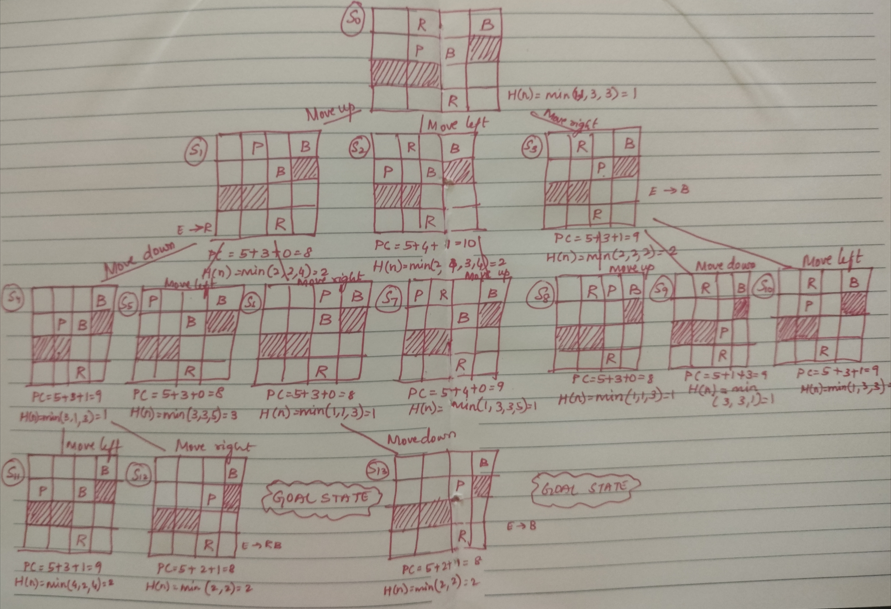 S0
R B
P B
R
H(n) = min(1, 3, 3) = 1
Move up
Move left
Move right
S1
P B
B
R
E → R
PC = 5+3+0 = 8
H(n) = min(2, 2, 4) = 2
S2
R B
P B
R
PC = 5+4+1 = 10
H(n) = min(2, 4, 3, 4) = 2
S3
R B
P
R
E → B
PC = 5+3+1 = 9
H(n) = min(2, 3, 2) = 2
Move down
Move left
Move right
Move up
Move up
Move down
Move left
S4
B
P B
R
PC = 5+3+1 = 9
H(n) = min(3, 1, 3) = 1
S5
P B
B
R
PC = 5+3+0 = 8
H(n) = min(3, 3, 5) = 3
S6
P B
B
R
PC = 5+3+0 = 8
H(n) = min(1, 1, 3) = 1
S7
P R B
B
R
PC = 5+4+0 = 9
H(n) = min(1, 3, 3, 5) = 1
S8
R P B
R
PC = 5+3+0 = 8
H(n) = min(1, 1, 3) = 1
S9
R B
P
R
PC = 5+1+3 = 9
H(n) = min
(3, 3, 1) = 1
S10
R B
P
R
PC = 5+3+1 = 9
H(n) = min(1, 3, 3)
Move left
Move right
Move down
S11
B
P B
R
PC = 5+3+1 = 9
H(n) = min(4, 2, 4) = 2
S12
B
P
R
E → RB
PC = 5+2+1 = 8
H(n) = min (2, 2) = 2
GOAL STATE
S13
B
P
R
E → B
PC = 5+2+1 = 8
H(n) = min(2, 2) = 2
GOAL STATE